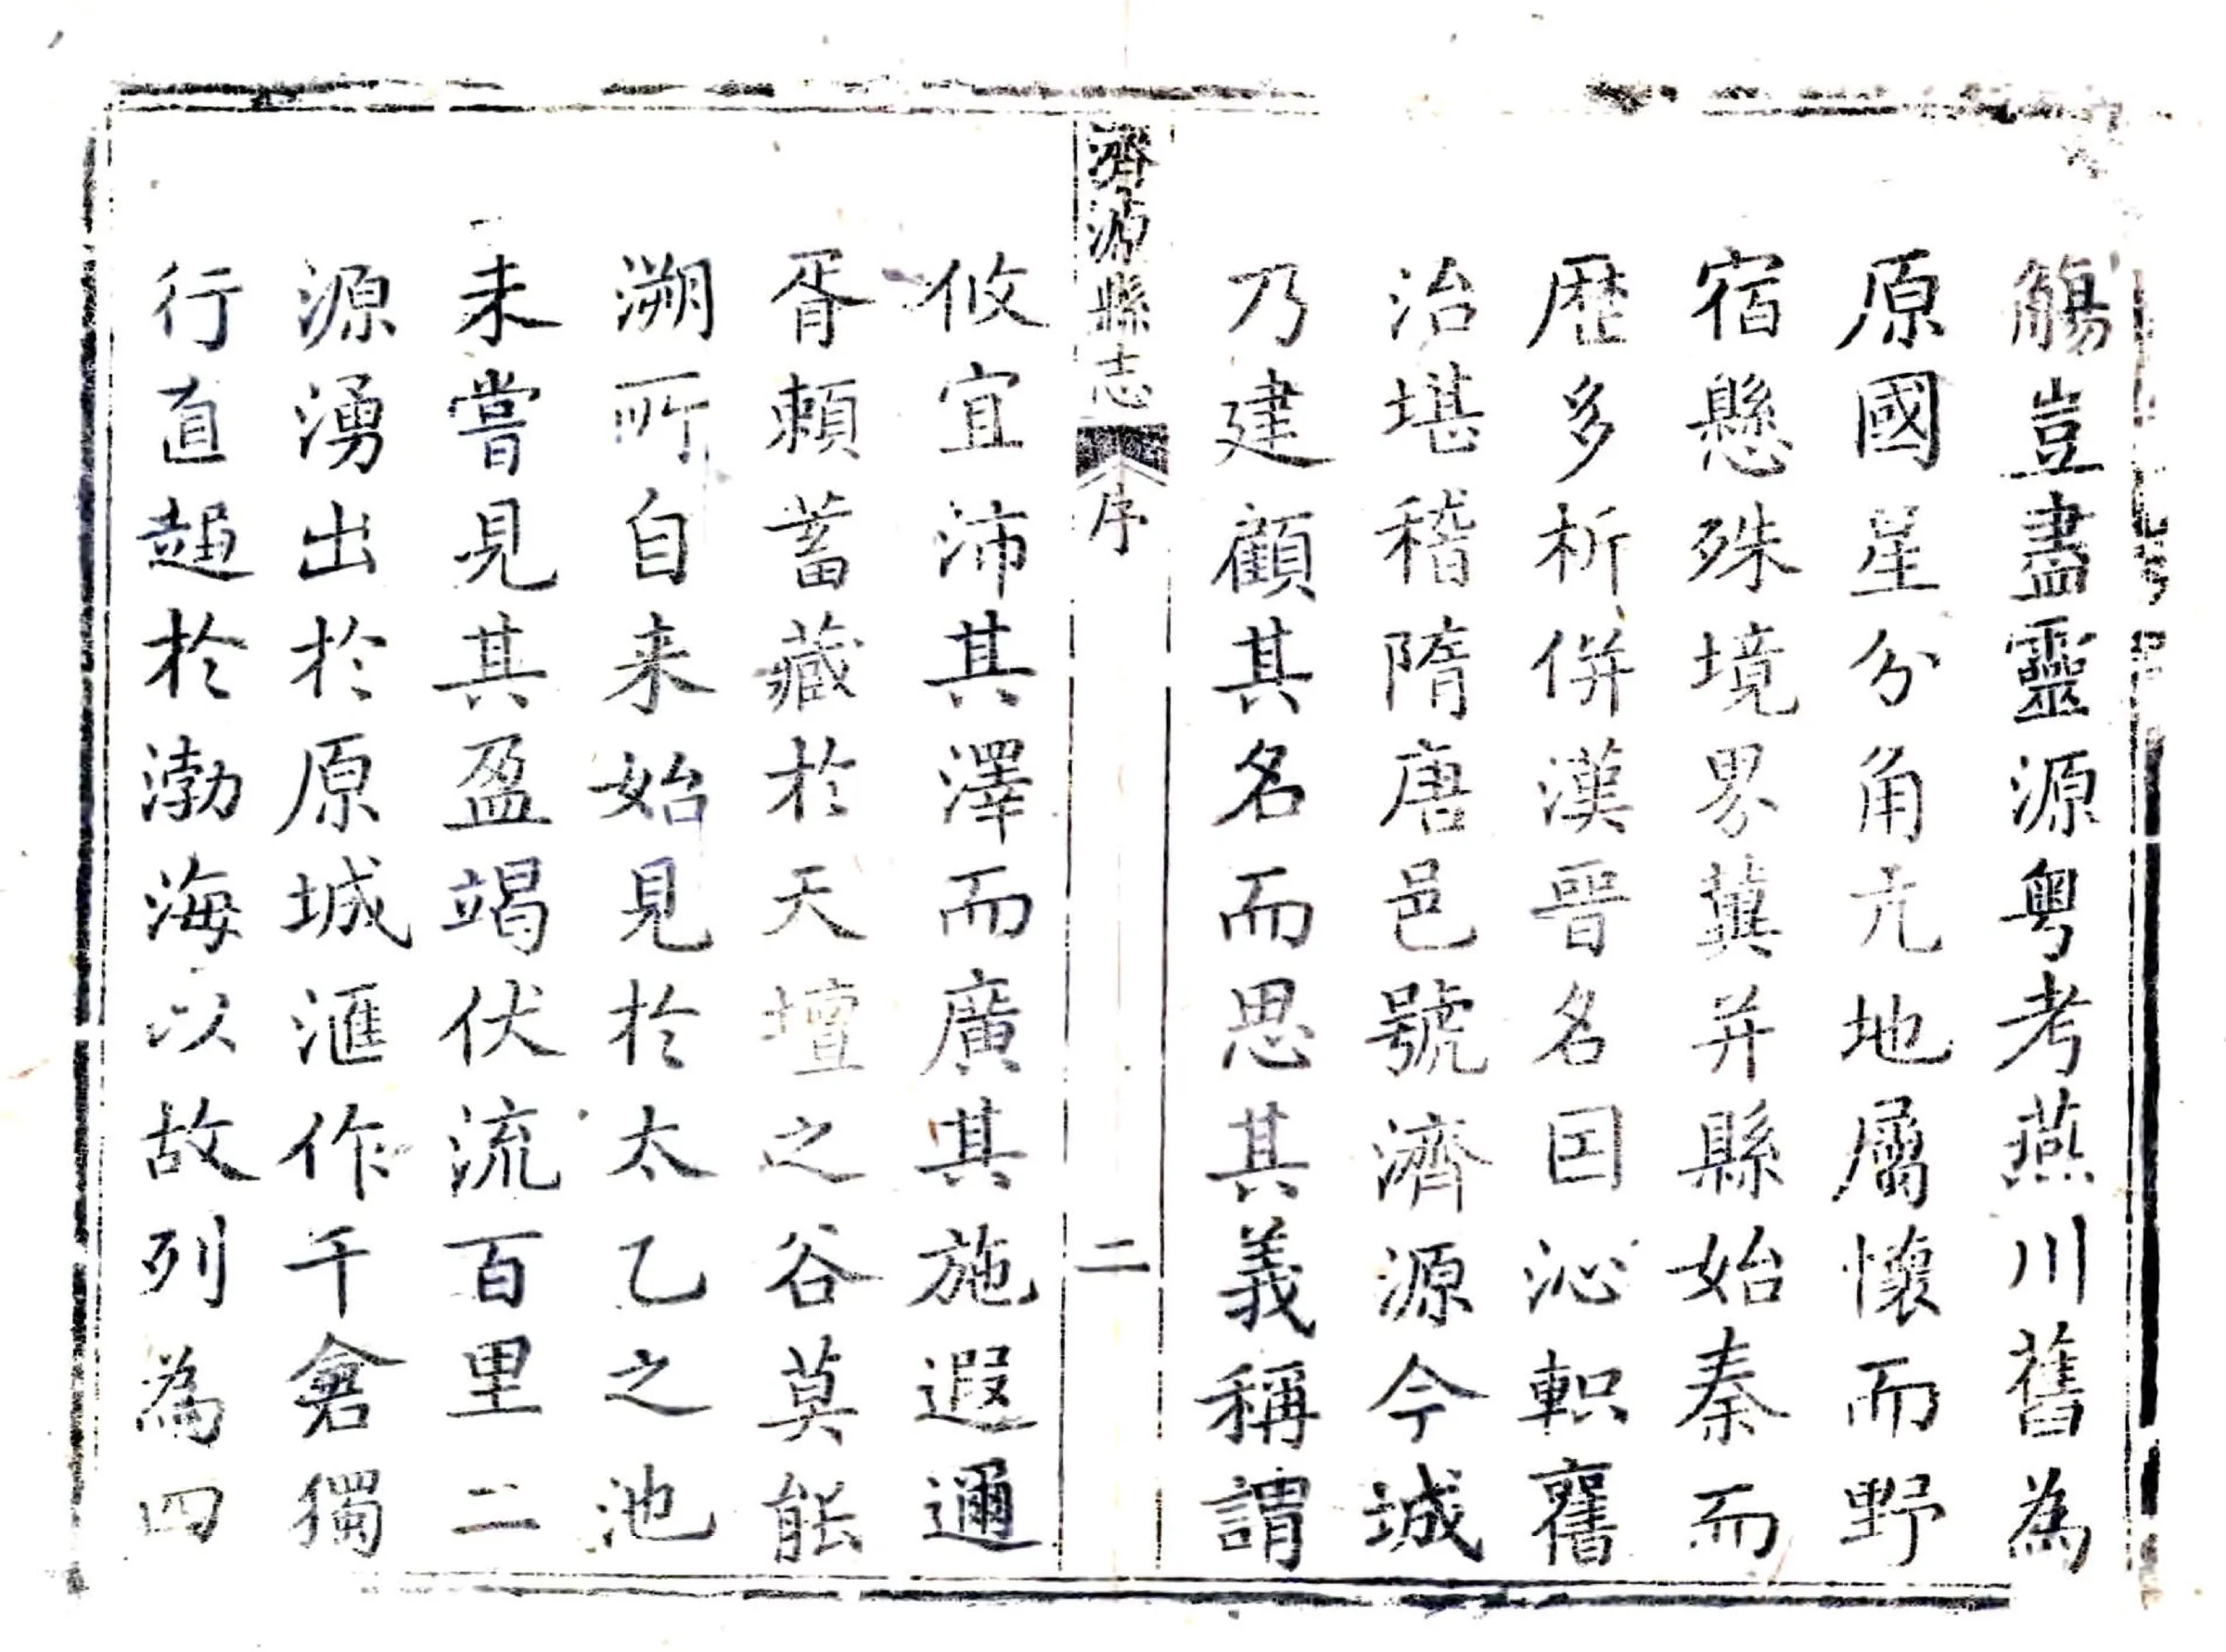 觴豈盡靈源粤考燕川舊為
原國星分角亢地屬懷而野
宿懸殊境界冀并縣始秦而
歴多析併漢晉名因沁軹舊
治堪稽隋唐邑號濟源今城
乃建顧其名而思其義稱謂
濟源縣志
序
二
攸宜沛其澤而廣其施遐邇
胥賴蓄藏於天壇之谷莫能
溯所自来始見於太乙之池
未嘗見其盈竭伏流百里二
源湧出於原城滙作千倉獨
行直趨於渤海以故列為四